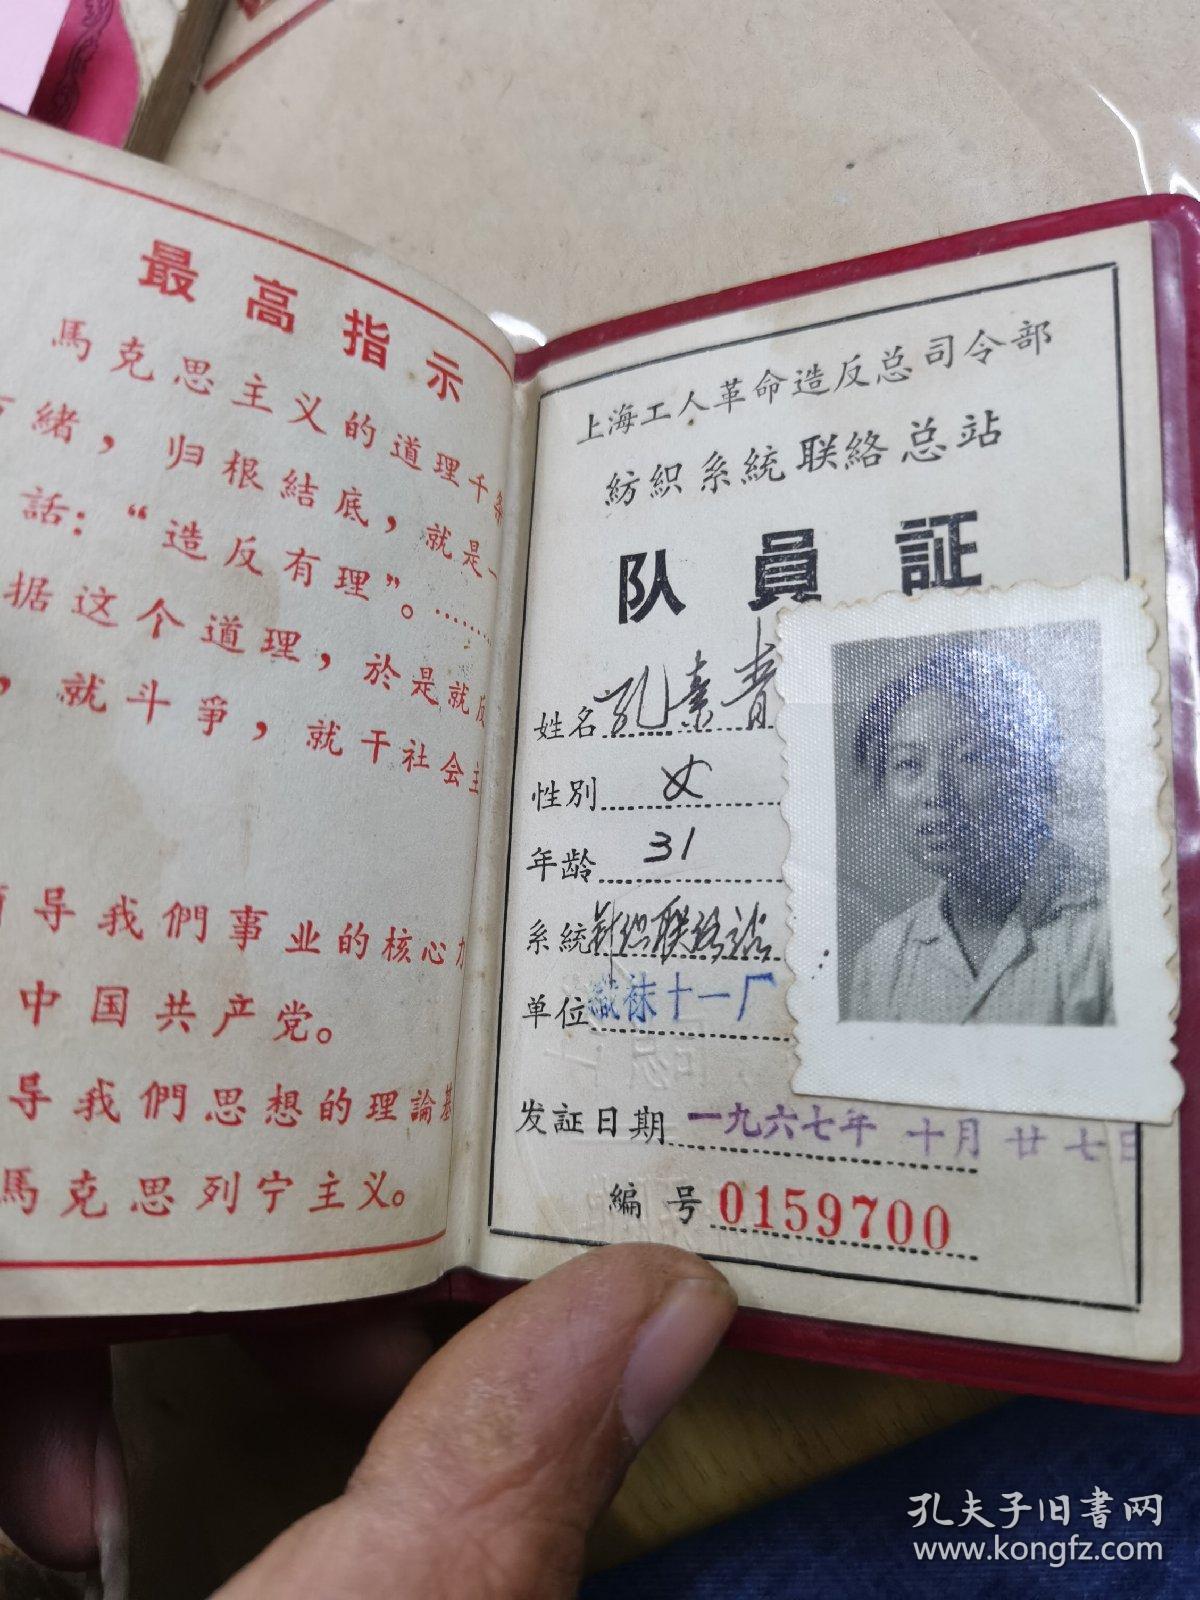 最高指示
馬克思主义的道理千条
緒，归根結底，就是一
話：“造反有理”。……
据这个道理，於是就反
，就斗爭，就干社会主
导我們事业的核心力
中国共产党。
导我們思想的理論基
馬克思列宁主义。
上海工人革命造反总司令部
紡織系統联絡总站
队員証
姓名 孔素青
性別 女
年龄 31
系統 针织联络站
单位 織袜十一厂
发証日期 一九六七年 十月廿七日
編号 0159700
孔夫子旧书网
www.kongfz.com